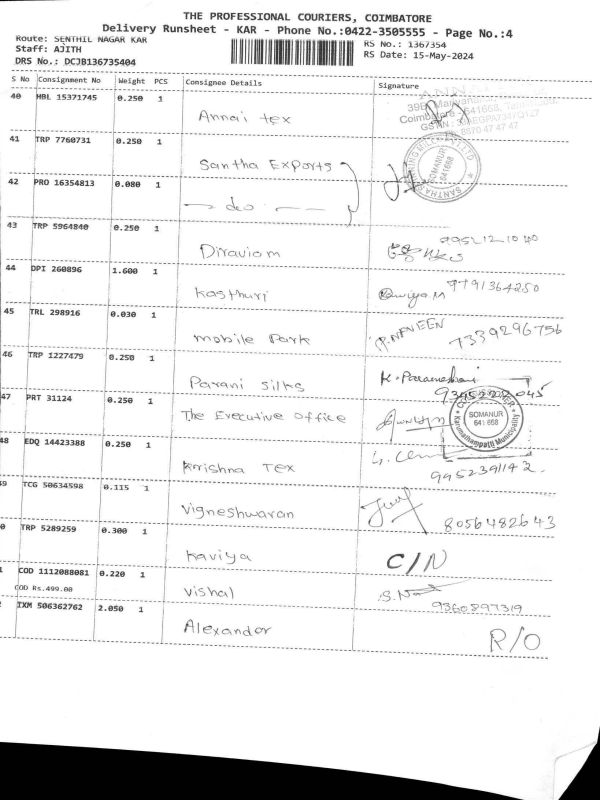 THE PROFESSIONAL COURIERS, COIMBATORE
Delivery Runsheet - KAR - Phone No.:0422-3505555 - Page No.:4
Route: SENTHIL NAGAR KAR
Staff: AJITH
DRS No.: DCJB136735404
RS No.: 1367354
RS Date: 15-May-2024
S No Consignment No Weight PCS Consignee Details Signature
40 HBL 15371745 0.250 1 Annai tex
41 TRP 7760731 0.250 1 Santha Exports
SOMANUR
641 668
42 PRO 16354813 0.080 1 do
43 TRP 5964840 0.250 1 Diraviam
44 DPI 260896 1.600 1 Kasthuri 9791364250
45 TRL 298916 0.030 1 mobile Park P.NAVEEN 7339296756
46 TRP 1227479 0.250 1 Parani silks
47 PRT 31124 0.250 1 The Executive Office
SOMANUR
641 668
Karumathampatti Municipality
48 EDQ 14423388 0.250 1 Krrishna Tex
9952391142
49 TCG 50634598 0.115 1 Vigneshwaran 8056482643
0 TRP 5289259 0.300 1 Kaviya C/N
1 COD 1112088081 0.220 1 Vishal
COD Rs.499.00 9360897319
2 IXM 506362762 2.050 1 Alexander R/O